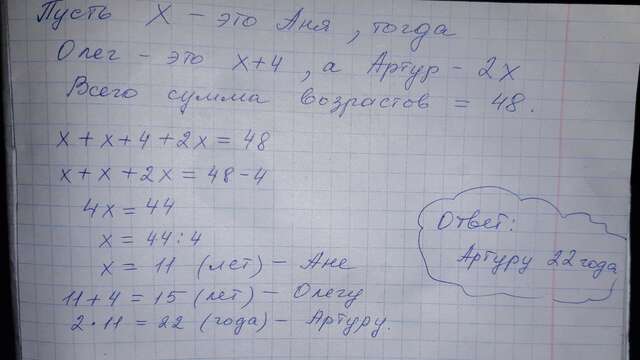 Пусть X - это Аня, тогда
Олег - это x+4, а Артур - 2x
Всего сумма возрастов = 48.
x + x + 4 + 2x = 48
x + x + 2x = 48 - 4
4x = 44
x = 44 : 4
x = 11 (лет) - Ане
11 + 4 = 15 (лет) - Олегу
2 · 11 = 22 (года) - Артуру.
Ответ:
Артуру 22 года